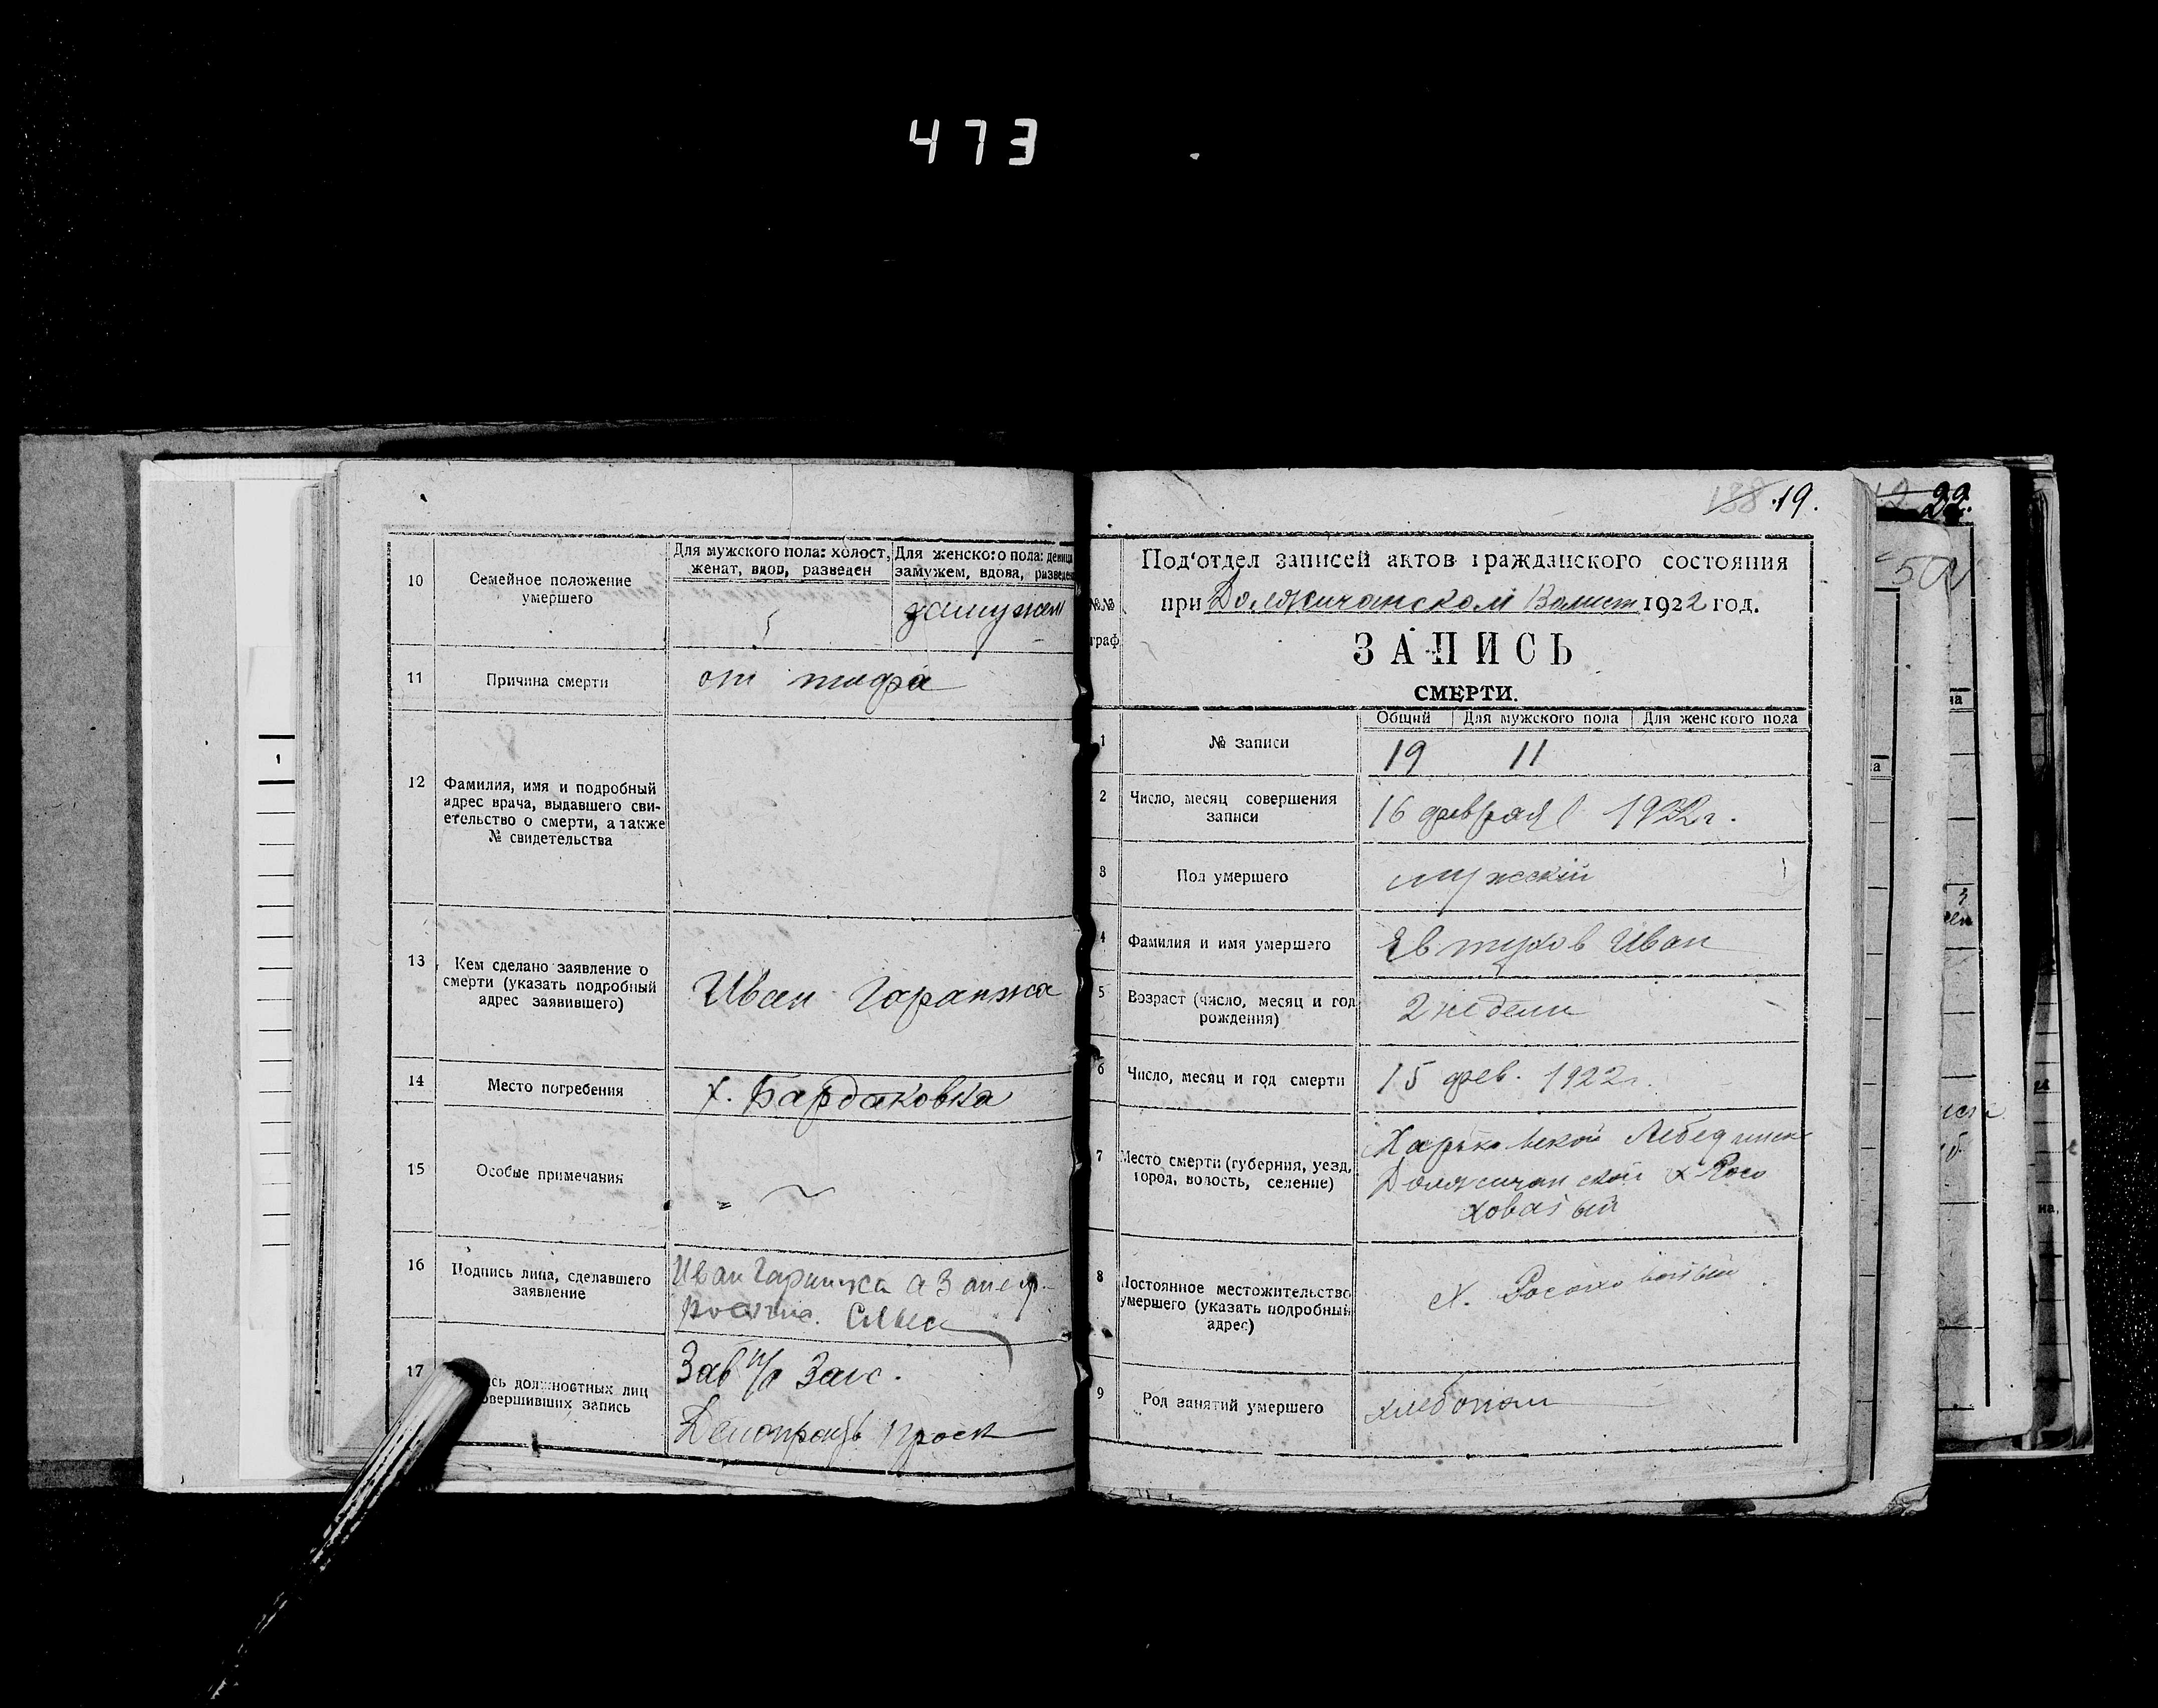 473
10
Семейное положение
умершего
Для мужского пола: холост,
женат, вдов, разведен
Для женского пола: девица
замужем, вдова, разведен
замужем
11
Причина смерти
от тифа
12
Фамилия, имя и подробный
адрес врача, выдавшего сви-
етельство о смерти, а также
№ свидетельства
13
Кем сделано заявление о
смерти (указать подробный
адрес заявившего)
Иван Гаранжа
14
Место погребения
х. Бардаковка
15
Особые примечания
16
Подпись лица, сделавшего
заявление
Иван Гаранжа а за негр.
17
сь должностных лиц
овершивших запись
Зав п/о Загс.
188 19.
№№
граф
Под'отдел записей актов гражданского состояния
при Должичанском Волист 1922 год.
ЗАПИСЬ
СМЕРТИ.
Общий
Для мужского пола
Для женского пола
1
№ записи
19 11
2
Число, месяц совершения
записи
16 февраля 1922 г.
3
Пол умершего
мужскій
4
Фамилия и имя умершего
Евтухов Иван
5
Возраст (число, месяц и год
рождения)
2 недели
6
Число, месяц и год смерти
15 фев. 1922 г.
7
Место смерти (губерния, уезд,
город, волость, селение)
Харьковской Лебединск
Должичанской х Росо
ховатый
8
Постоянное местожительство
умершего (указать подробный
адрес)
х. Росоховатый
9
Род занятий умершего
хлебопаш
22.